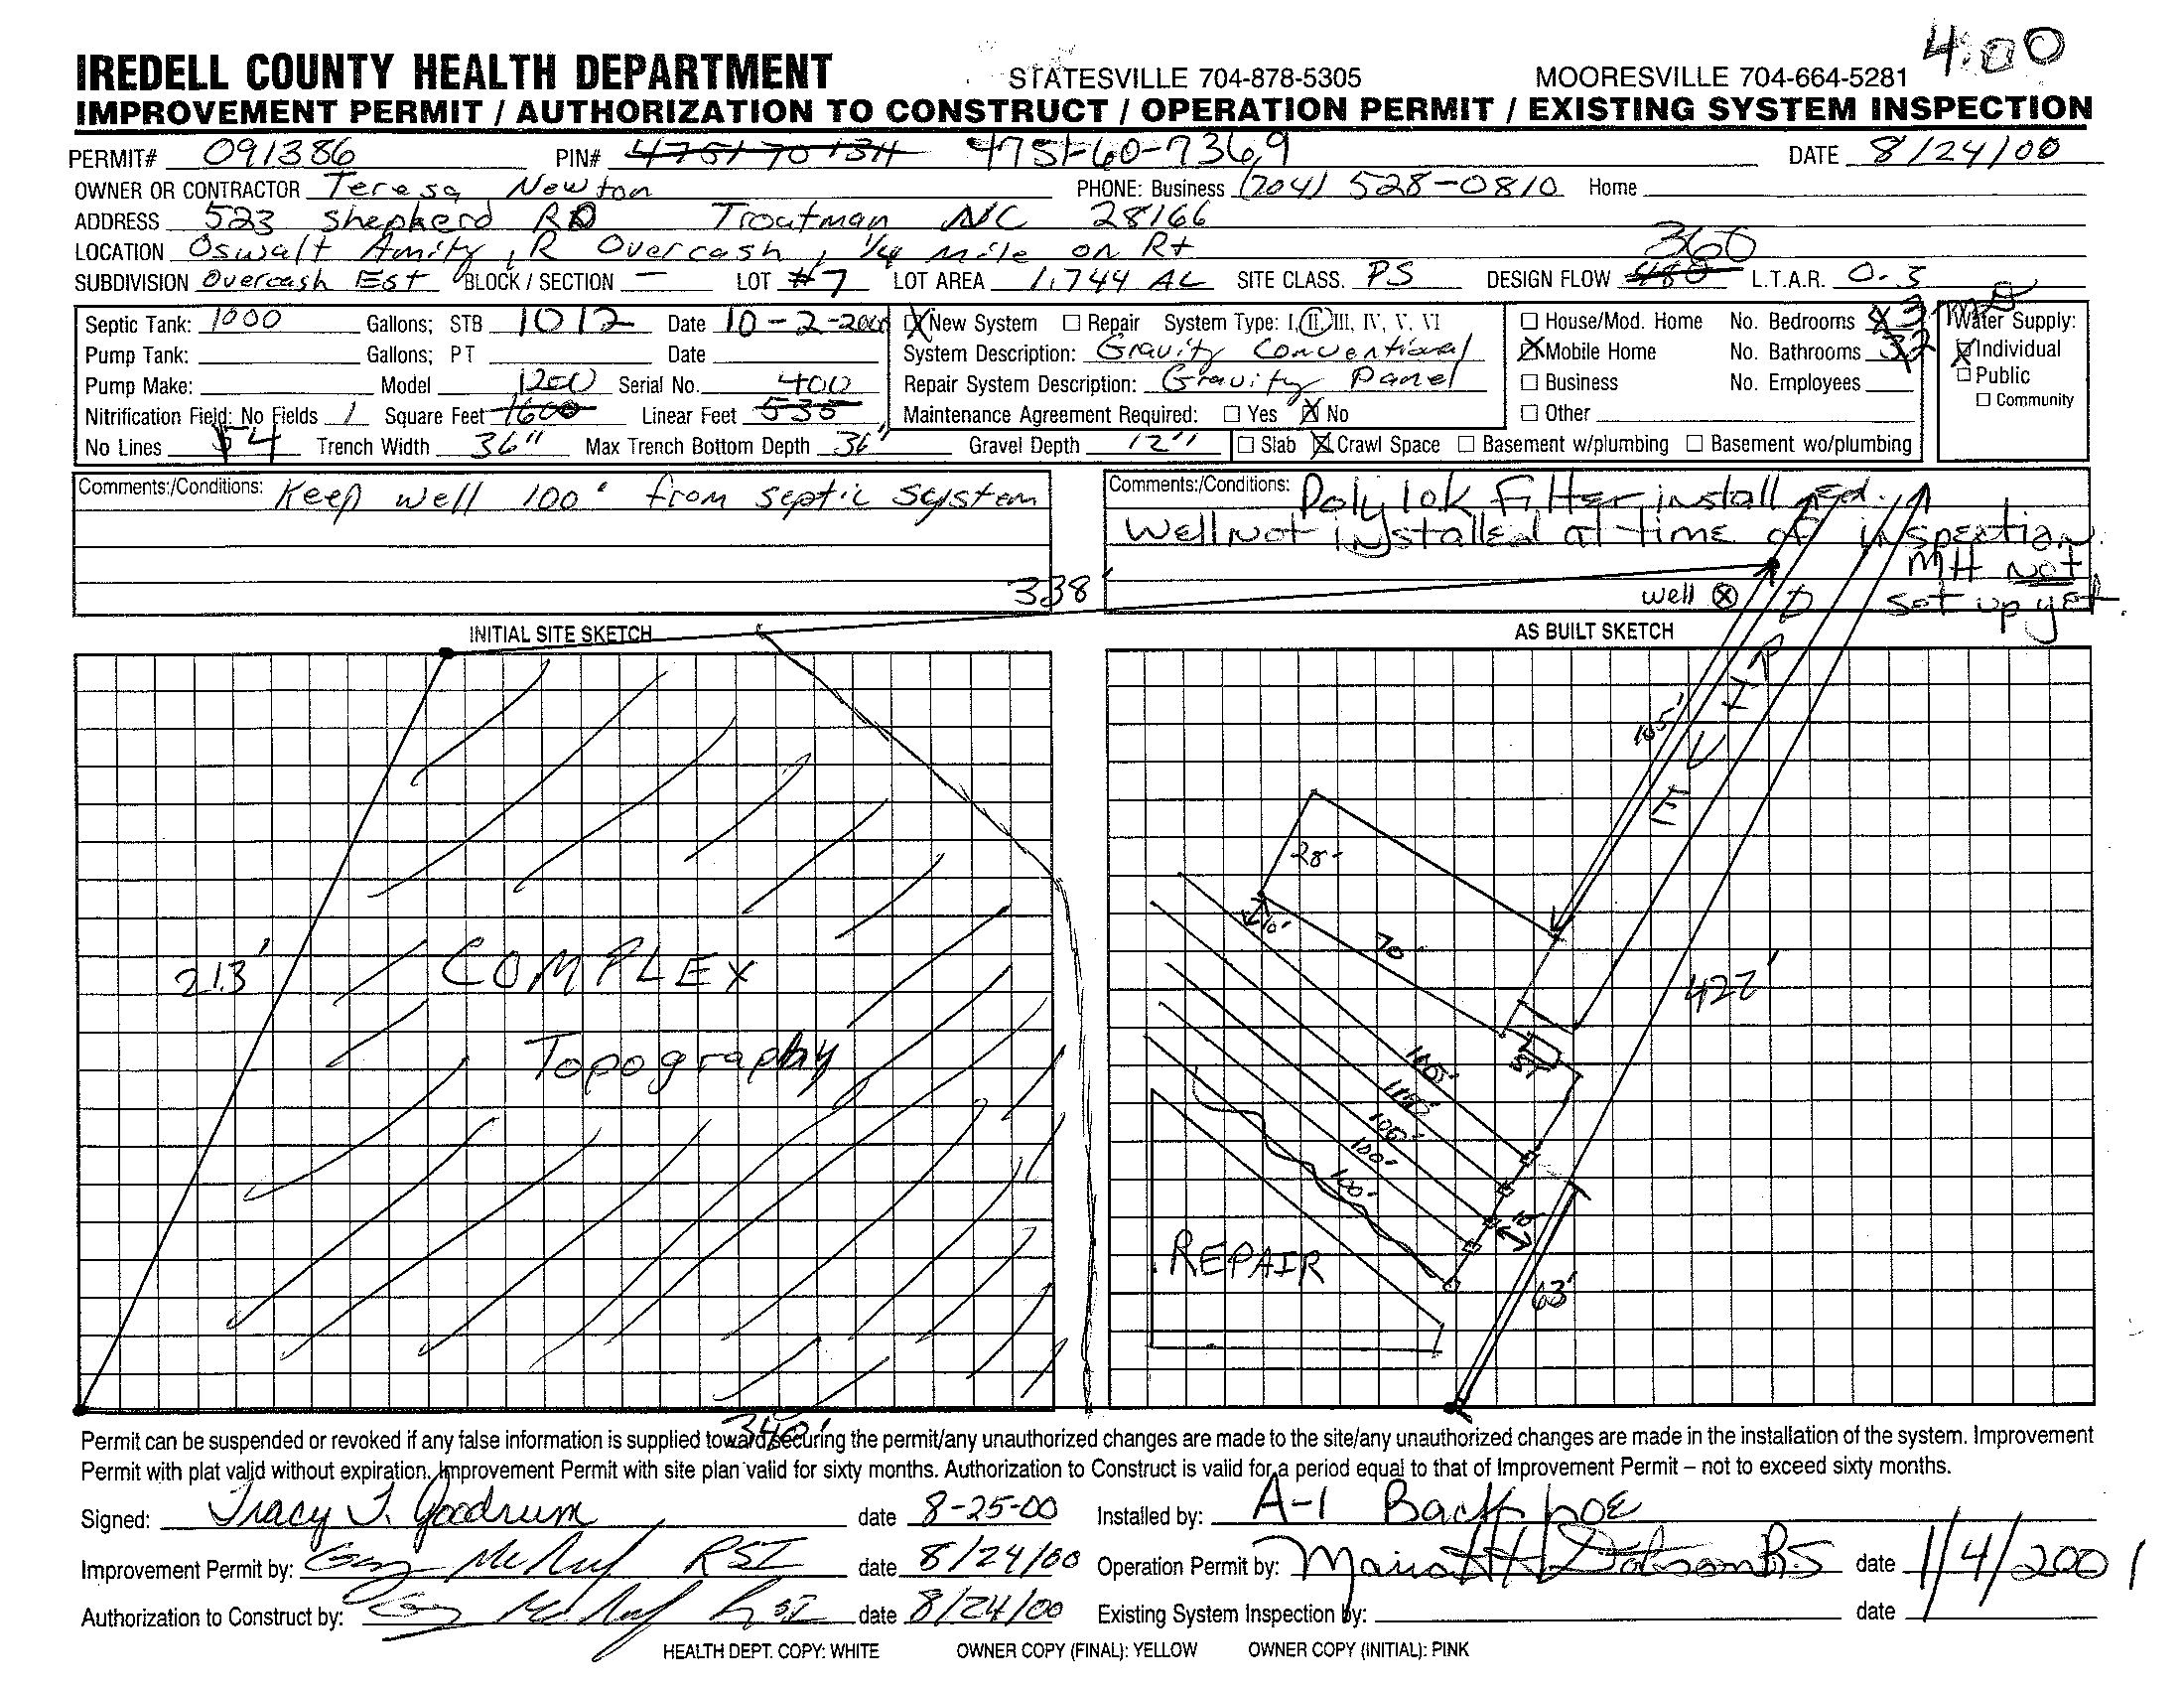 4:00
IREDELL COUNTY HEALTH DEPARTMENT STATESVILLE 704-878-5305 MOORESVILLE 704-664-5281
IMPROVEMENT PERMIT / AUTHORIZATION TO CONSTRUCT / OPERATION PERMIT / EXISTING SYSTEM INSPECTION
PERMIT# 091386 PIN# 4751 70 1311 4751-60-7369 DATE 8/24/00
OWNER OR CONTRACTOR Teresa Newton PHONE: Business (704) 528-0810 Home
ADDRESS 523 Shepherd RD Troutman NC 28166
LOCATION Oswalt Amity, R Overcash, 1/4 mile on Rt
SUBDIVISION Overcash Est BLOCK / SECTION — LOT #7 LOT AREA 1.744 AC SITE CLASS. PS DESIGN FLOW 480 360 L.T.A.R. 0.3
Septic Tank: 1000 Gallons; STB 1012 Date 10-2-2000 New System Repair System Type: I, II, III, IV, V, VI House/Mod. Home No. Bedrooms 3 Water Supply:
Pump Tank: Gallons; PT Date System Description: Gravity Conventional Mobile Home No. Bathrooms 2 Individual
Pump Make: Model 1200 Serial No. 400 Repair System Description: Gravity Panel Business No. Employees Public
Nitrification Field: No Fields 1 Square Feet 1600 Linear Feet 535 Maintenance Agreement Required: Yes No Other Community
No Lines 4 Trench Width 36" Max Trench Bottom Depth 36" Gravel Depth 12" Slab Crawl Space Basement w/plumbing Basement wo/plumbing
Comments:/Conditions: Keep well 100' from septic system
Comments:/Conditions: Polylok Filter installed.
Well not installed at time of inspection.
MH not
set up yet.
338'
well
INITIAL SITE SKETCH AS BUILT SKETCH
DRIVE
105'
28'
10'
70'
213'
COMPLEX
Topography
422'
ST
100'
100'
100'
100'
10'
REPAIR
63'
340'
Permit can be suspended or revoked if any false information is supplied toward securing the permit/any unauthorized changes are made to the site/any unauthorized changes are made in the installation of the system. Improvement
Permit with plat valid without expiration. Improvement Permit with site plan valid for sixty months. Authorization to Construct is valid for a period equal to that of Improvement Permit – not to exceed sixty months.
Signed: Tracy J. Goodrum date 8-25-00 Installed by: A-1 Backhoe
Improvement Permit by: RSI date 8/24/00 Operation Permit by: RS date 1/4/2001
Authorization to Construct by: RSI date 8/24/00 Existing System Inspection by: date
HEALTH DEPT. COPY: WHITE OWNER COPY (FINAL): YELLOW OWNER COPY (INITIAL): PINK